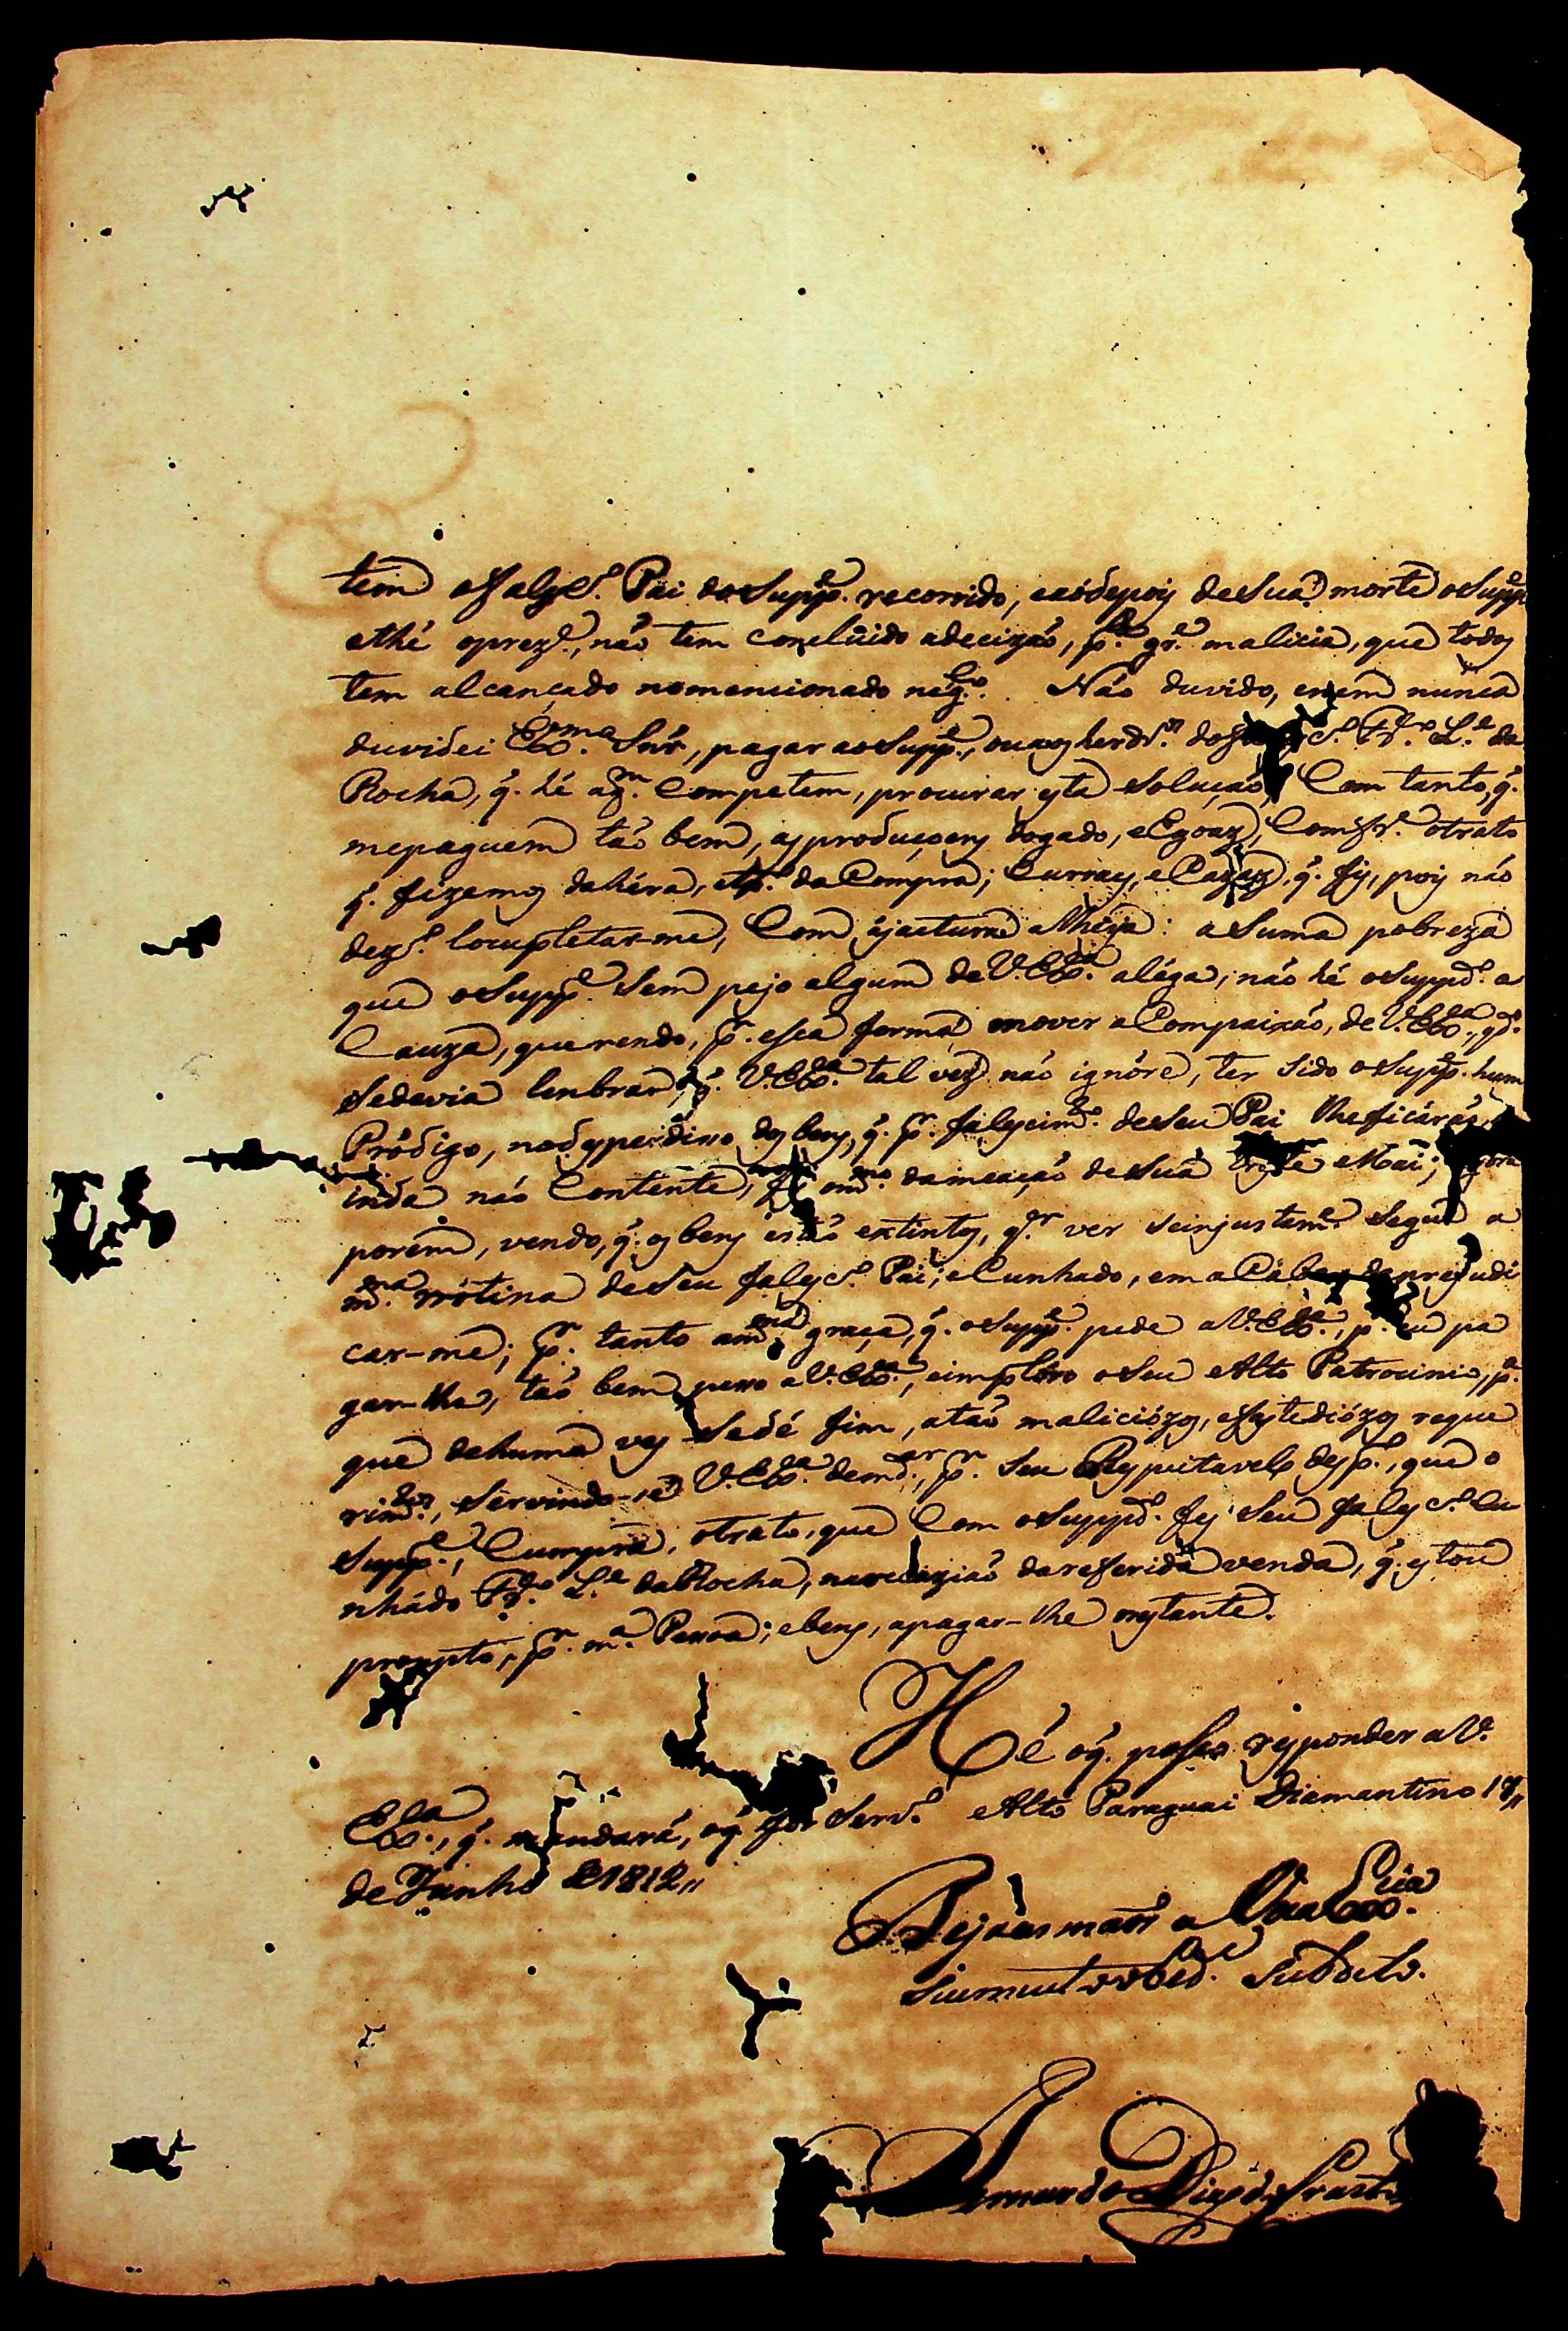 tem o falesc.º Pai do Supp.e recorrido, e só depois de Sua morte o Supp.e
athé o prez.e, não tem concluido a decizão, p.la gr.e malicia, que todos
tem alcançado no mencionado neg.co. Não duvido, e nem nunca
duvidei Ex.mo Snr, pagar ao Supp.e, ou aos herdr.os do c.º Fr.co L.e da
Rocha, q. hé aq.m Competem, procurar esta solução, Com tanto, q.
me paguem táo bem, as produçoens do gado, e Egoas, Comfr.e o trato
q. fizemos da héra, da Compra; Currais, e Cazas, q. fis, pois não
dez.º locupletar-me, Com a jactura alheya: a Suma pobreza
que o Supp.e Sem pejo algum de V. Ex.a aléga, não hé o Suppd.º a
Cauza, querendo, p.r esta forma mover a Compaixão, de V. Ex.a, qd.º
se devia lenbrar, q. V. Ex.a tal vez não ignóre, ter sido o Supp.e hum
Pródigo, no desperdicio dos bens, q. p.r falescim.to de Seu Pai lhe ficárão,
inda não Contente, fez o m.mo da meação de Sua triste Mai; agora
porém, vendo, q. os bens estão extintos, q.r ver se injustam.e Segue a
m.ma rrótina de Seu falesc.º Pai; e Cunhado, em aCabar de prejudi
car-me; p.r tanto a m.ma graça, q. o Supp.e pede a V. Ex.a, p.a eu pa
gar-lhe, táo bem peço a V. Ex.a, e imploro o Seu Alto Patrocinio, p.a
que de huma ves Se dê fim, a táo maliciózos, e fastediózos reque
rim.tos, Servindo-se V. Ex.a de md.ar, p.r Seu Respeitavel desp.º, que o
Supp.e, Cumpra, o trato, que Com o Suppd.º fes Seu falesc.º Cu
nhádo Fr.co L.e da Rocha, na ocazião da referida venda, q. estou
prompto, p.r m.a Pessoa; e bens, a pagar-lhe o restante.
Hé o q. posso responder a V.
Ex.a, q. mandará, o q. for Serv.º Alto Paraguai Diamantino 18,,
de Junho de 1812,,
Beja as maõs a V.a Ex.cia
Seu muito obed.e Subdito.
Bernardo Dias de